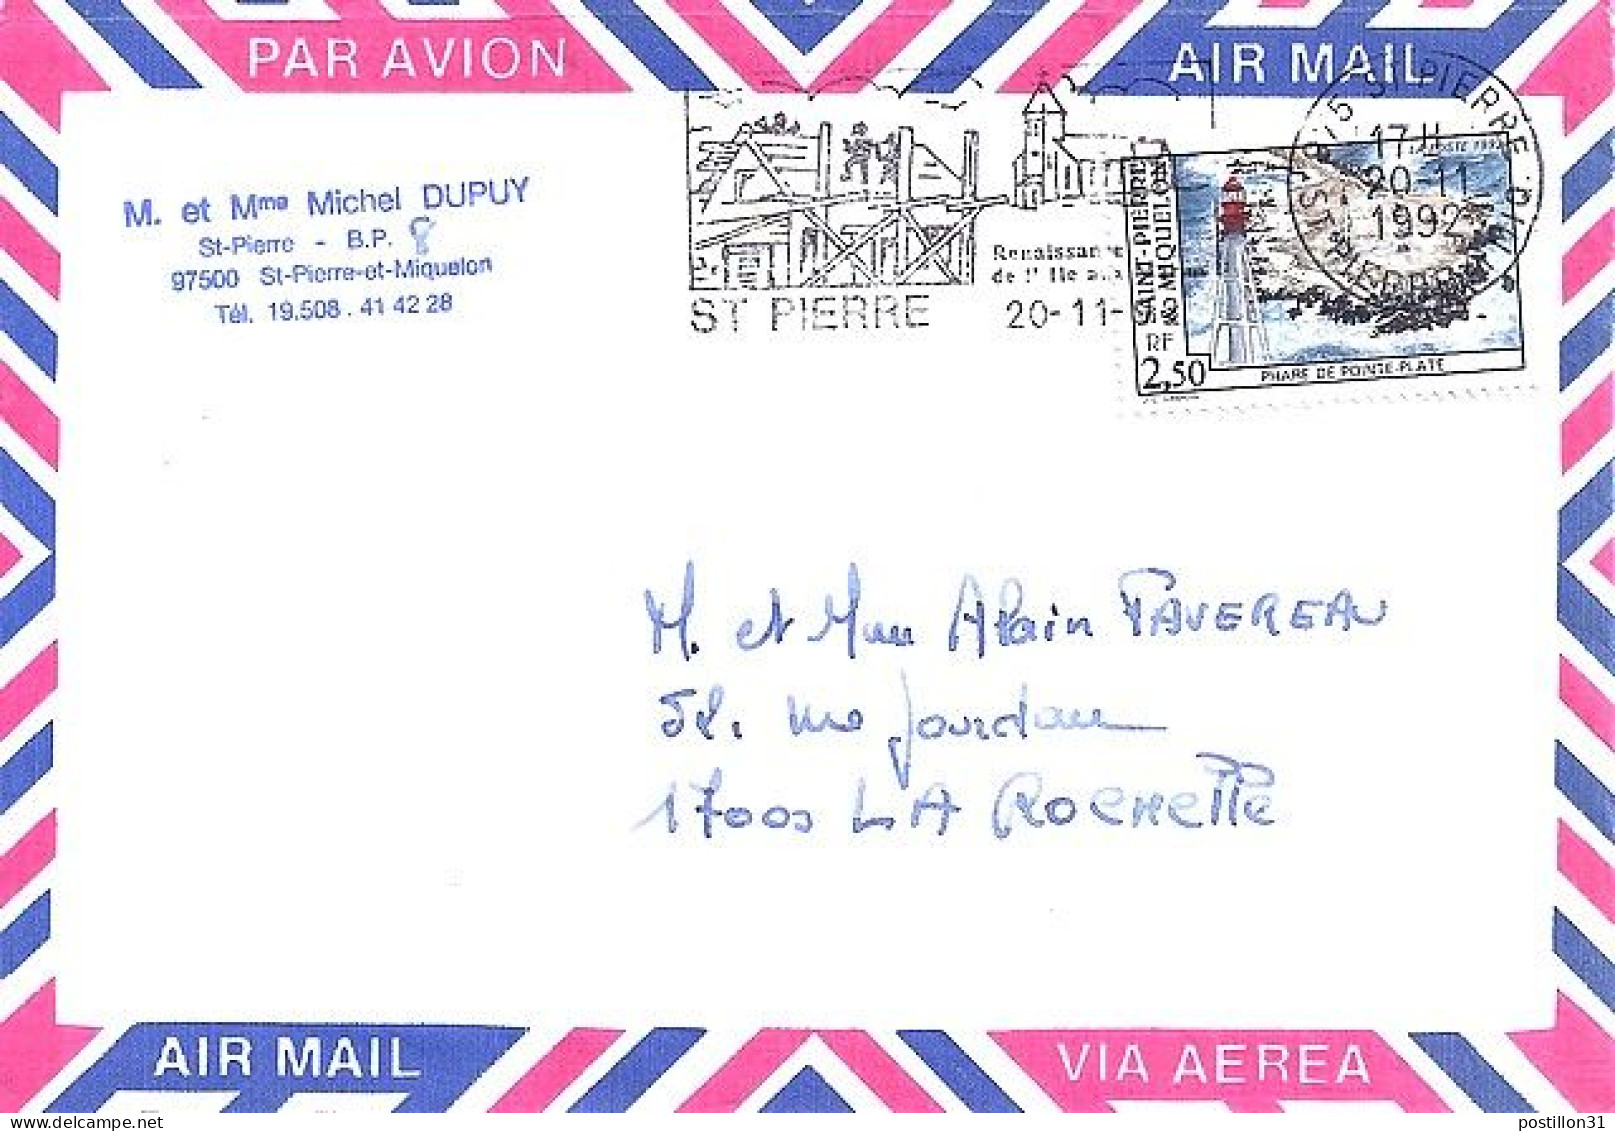 PAR AVION
AIR MAIL
M. et Mme Michel DUPUY
St-Pierre - B.P. 8
97500 St-Pierre-et-Miquelon
Tél. 19.508. 41 42 28
Renaissance
de l'Ile aux
ST PIERRE
20-11-
975 ST PIERRE
17 H
20-11
1992
ST PIERRE
LA POSTE 1992
SAINT-PIERRE
ET MIQUELON
RF
2,50
PHARE DE POINTE-PLATE
M. et Mme Alain FAVEREAU
52. rue Jourdan
17000 LA ROCHELLE
AIR MAIL
VIA AEREA
postillon31